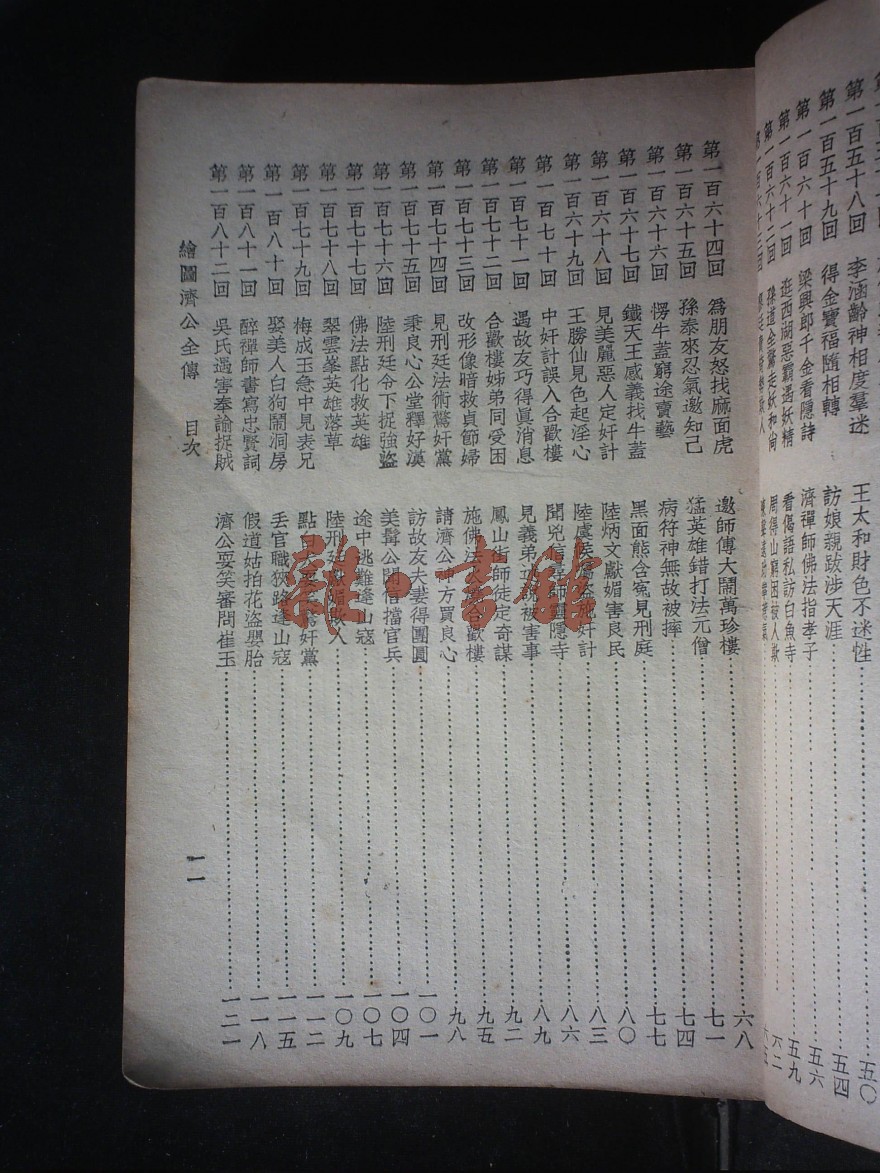 第一百五十八回 李涵齡神相度羣迷 王太和財色不迷性 五〇
第一百五十九回 得金寶福隨相轉 訪娘親跋涉天涯 五四
第一百六十回 梁興郎千金看隱詩 濟禪師佛法指孝子 五六
第一百六十一回 逛西湖惡霸遇妖精 看偈語私訪白魚寺 五九
第一百六十二回 孫道全驚走妖和尚 周得山窮困被人欺 六二
第一百六十三回 六五
第一百六十四回 為朋友怒找麻面虎 邀師傅大鬧萬珍樓 六八
第一百六十五回 孫泰來忍氣邀知己 猛英雄錯打法元僧 七一
第一百六十六回 愣牛蓋窮途賣藝 病符神無故被摔 七四
第一百六十七回 鐵天王感義找牛蓋 黑面熊含寃見刑庭 七七
第一百六十八回 見美麗惡人定奸計 陸炳文獻媚害良民 八〇
第一百六十九回 王勝仙見色起淫心 陸虞候奸計 八三
第一百七十回 中奸計誤入合歡樓 聞兇信師靈隱寺 八六
第一百七十一回 遇故友巧得眞消息 見義弟被害事 八九
第一百七十二回 合歡樓姊弟同受困 鳳山街師徒定奇謀 九二
第一百七十三回 改形像暗救貞節婦 施佛法合歡樓 九五
第一百七十四回 見刑廷法術驚奸黨 請濟公方買良心 九八
第一百七十五回 秉良心公堂釋好漢 訪故友夫妻得團圓 一〇一
第一百七十六回 陸刑廷令下捉強盜 美髯公聞信擋官兵 一〇四
第一百七十七回 佛法點化救英雄 途中逃難逢山寇 一〇七
第一百七十八回 翠雲峯英雄落草 陸刑廷獻媚欺人 一〇九
第一百七十九回 梅成玉急中見表兄 點奸黨 一一二
第一百八十回 娶美人白狗鬧洞房 丟官職狹路逢山寇 一一五
第一百八十一回 醉禪師書寫忠賢詞 假道姑拍花盜嬰胎 一一八
第一百八十二回 吳氏遇害奉諭捉賊 濟公耍笑審問崔玉 一二一
繪圖濟公全傳 目次 一一
雜書館